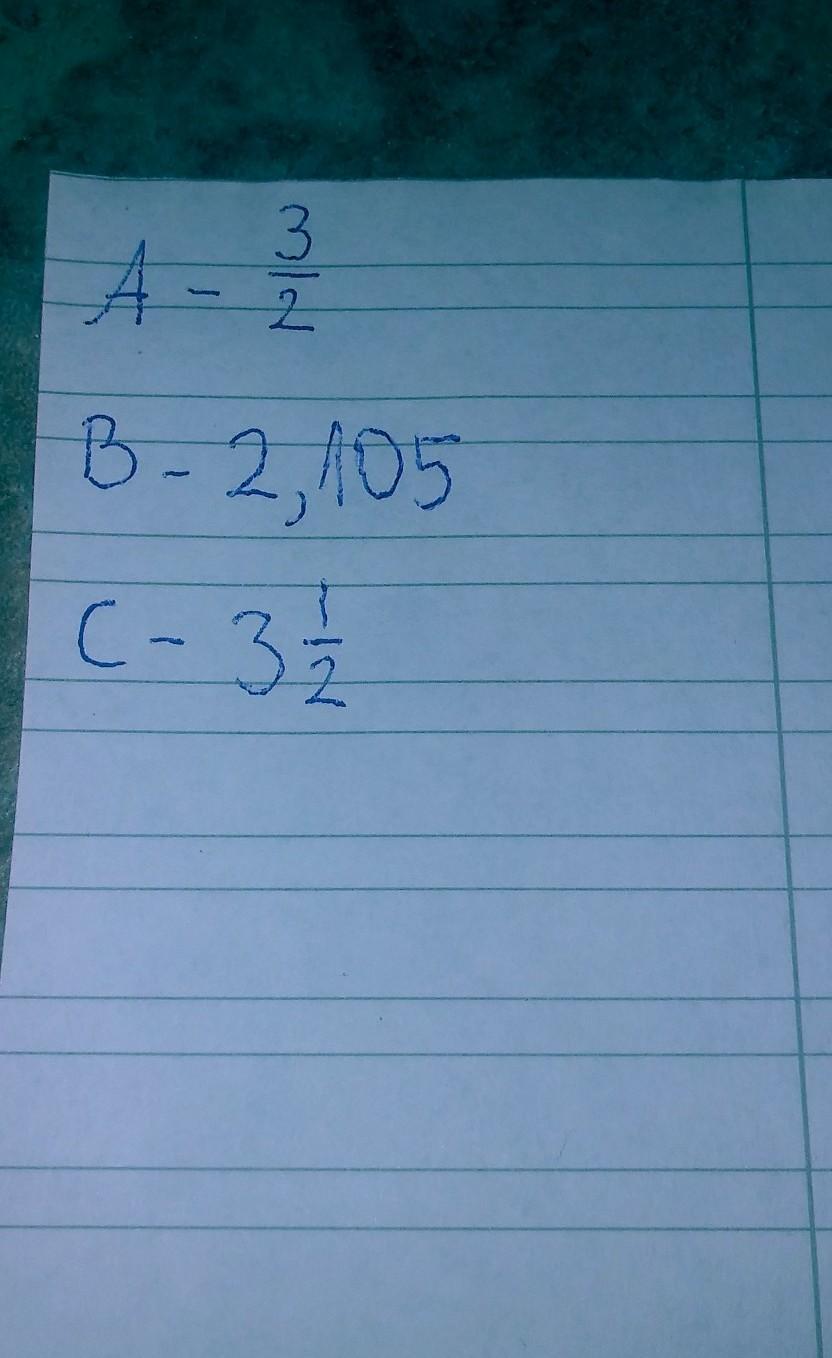 A - 3/2
B - 2,105
C - 3 1/2